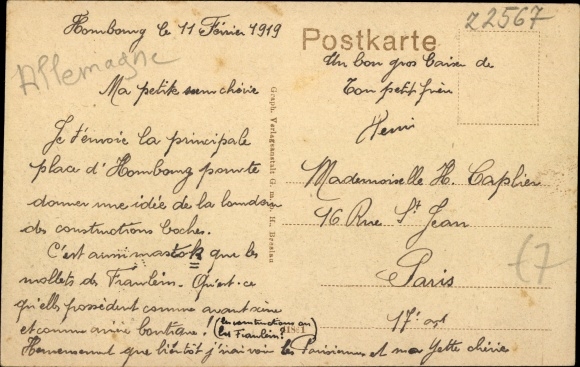 Hombourg le 11 Février 1919
Postkarte
z 2567
Allemagne
Ma petite sœur chérie
Je t'envoie la principale
place d'Hombourg pour te
donner une idée de la lourdeur
des constructions boches.
C'est aussi mastok que les
mollets des Fraulein. Qu'est-ce
qu'elles possèdent comme avant-scène
et comme arrière boutique! (les constructions ou
les Fraulein?)
Heureusement que bientôt j'irai voir les Parisiennes et ma Yette chérie
Un bon gros baiser de
Ton petit frère
Henri
Graph. Verlagsanstalt G. m. b. H., Breslau
Mademoiselle H. Caplier
16 Rue St Jean
Paris
17e arrt